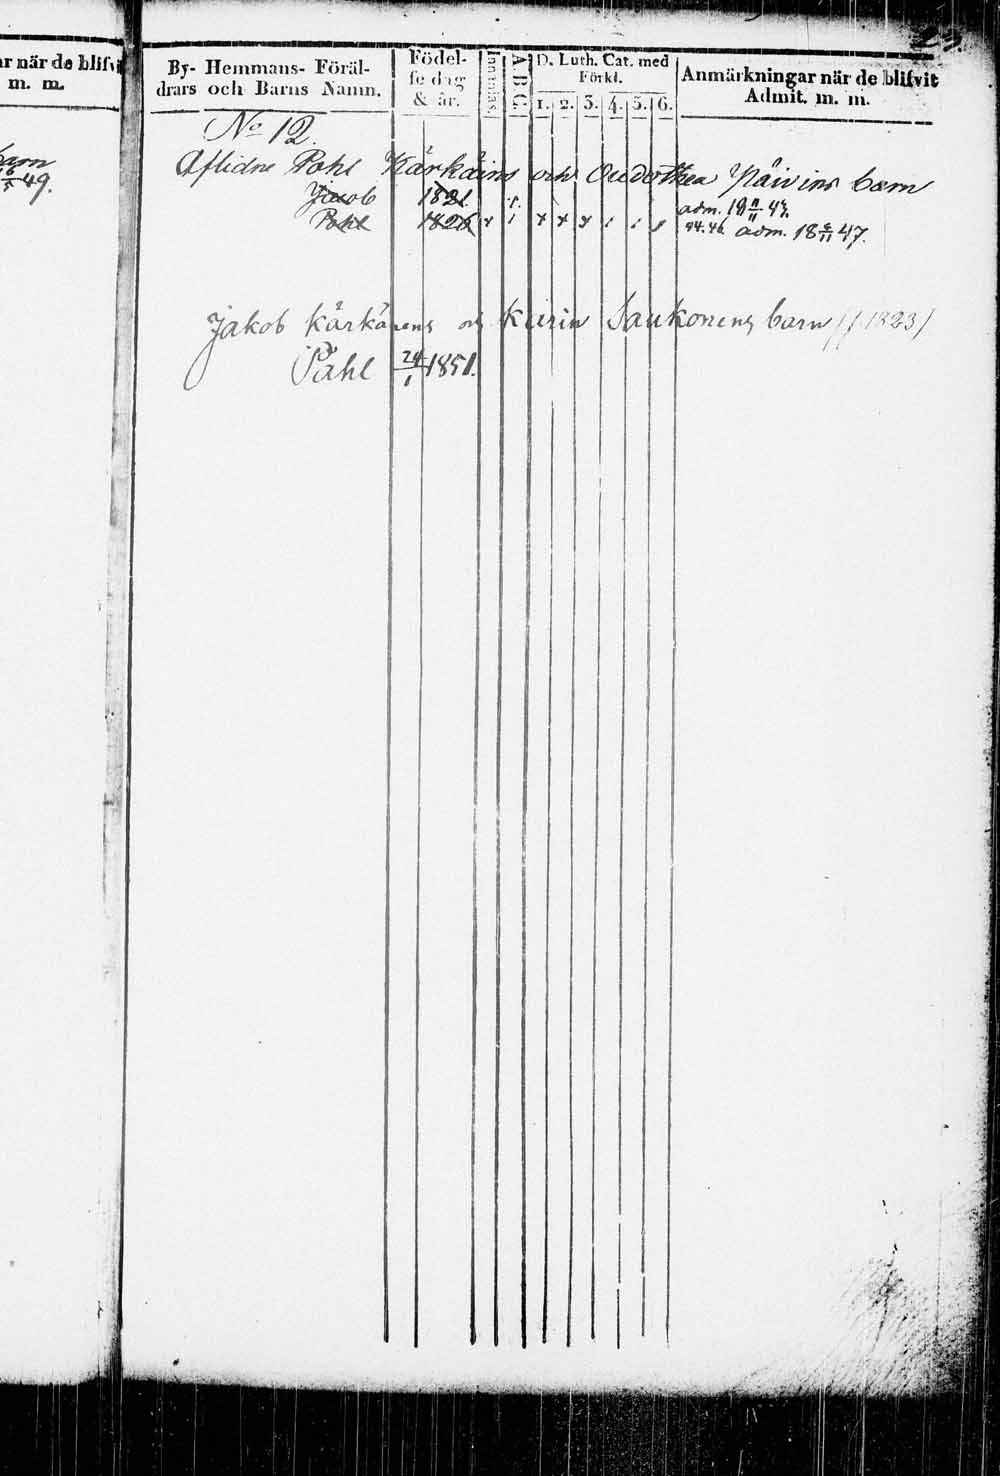 m. m.
49.
By- Hemmans- Föräl-
drars och Barns Namn.
Födel-
se dag
& år.
Innanläs.
A B C
D. Luth. Cat. med
Förkl.
1. 2. 3. 4. 5. 6.
Anmärkningar när de blifvit
Admit. m. m.
No 12.
Aflidne Pohl Kärkäins och Oudothea Päivins barn
Jacob 1821. adm. 18
Pohl 1826 x 1 x x x 1 1 44.46. adm. 18 47.
Jakob Kärkänens och Karin Saukonens barn (f. 1823)
Påhl 24/1 1851.